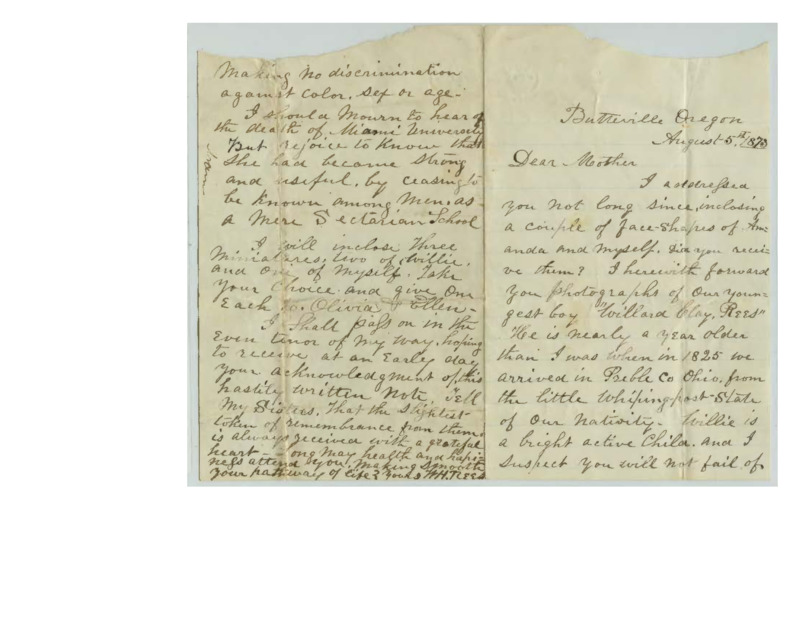 Butteville Oregon
August 5th, 1873
Dear Mother
I addressed
you not long since, inclosing
a couple of face-shapes of Am=
anda and myself. Did you recei=
ve them? I herewith forward
you photographs of our youn=
gest boy "Willard Clay, Rees"
He is nearly a year older
than I was when in 1825 we
arrived in Preble Co Ohio, from
the little whiping post-State
of our nativity. Willie is
a bright active Child. and I
suspect you will not fail of
Making no discrimination
against color, sex or age-
I should mourn to hear of
the death of Miami University
But rejoice to know that
She had become strong
and useful, by ceasing to
be known among men, as
a mere Sectarian School
I will inclose three
miniatures, two of Willie,
and one of myself. Take
your choice and give one
Each to Olivia & Ellen-
I shall pass on in the
even tenor of my way, hoping
to receive at an early day
your acknowledgment of this
hastily written note. Tell
my Sisters, that the slightest
token of remembrance from them
is always received with a grateful
heart - Long may health and hapi=
ness attend you, making smooth
your pathway of life? Yours W.H. Rees